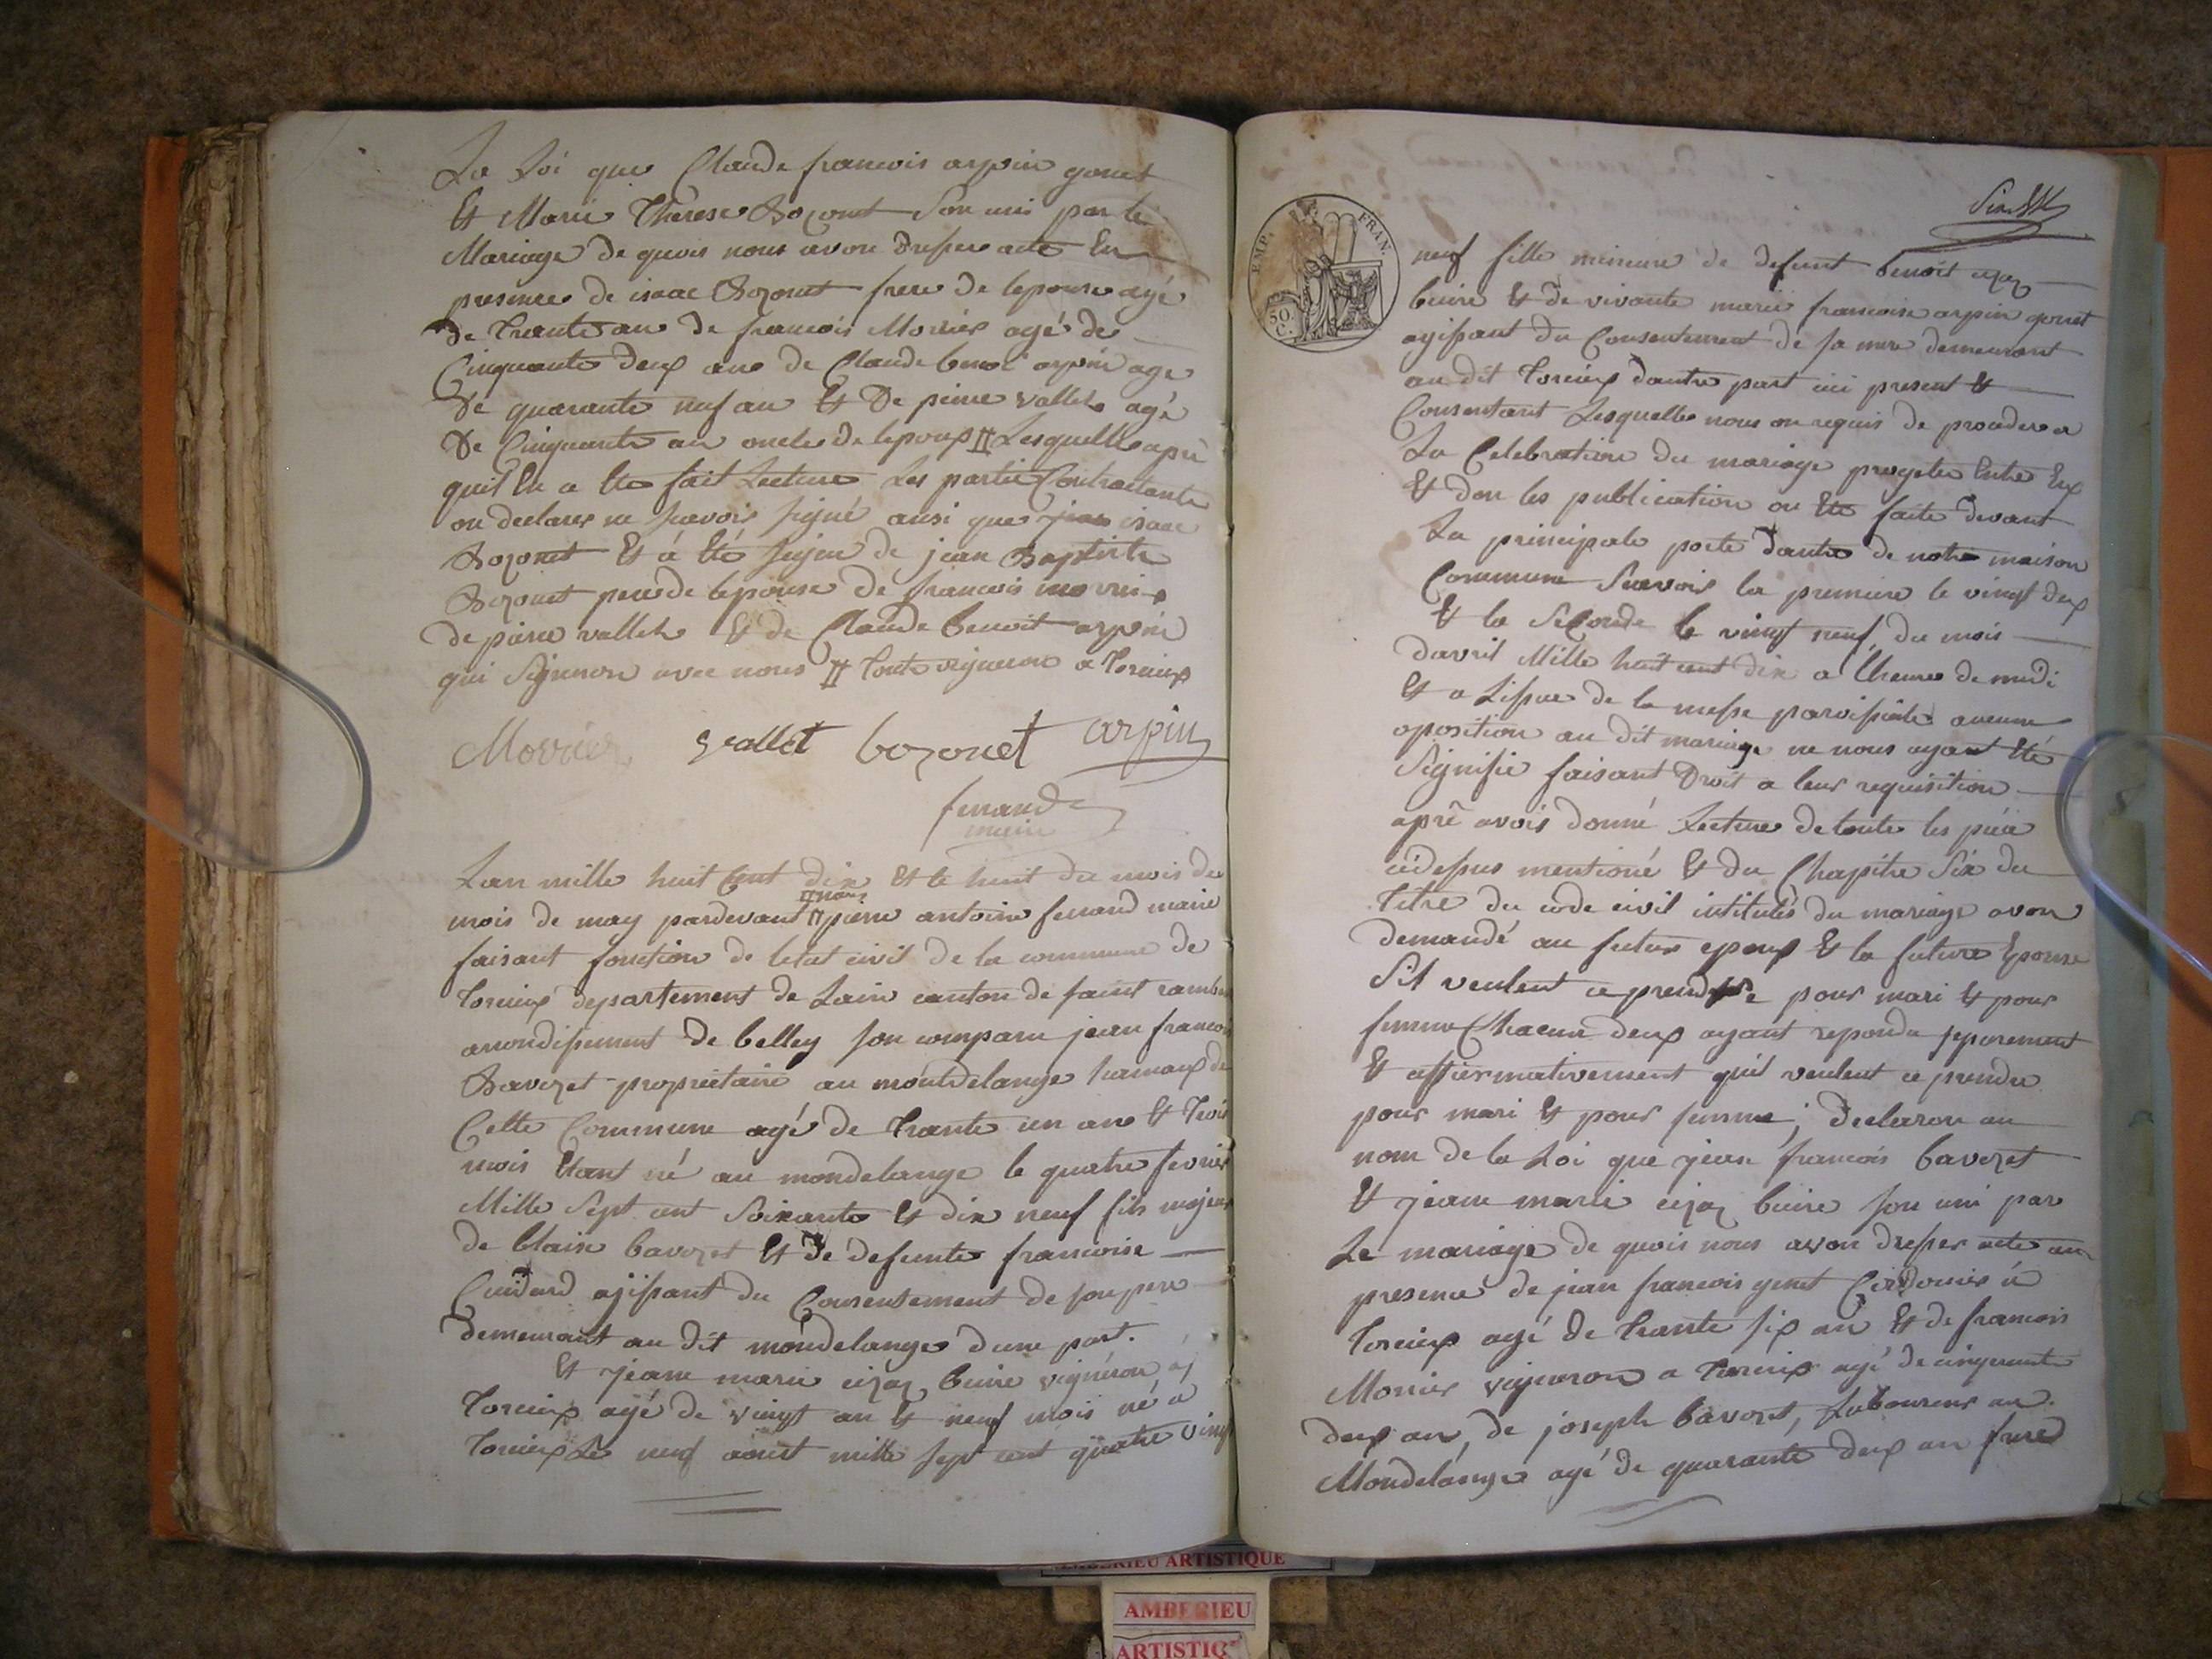 La Loi que Claude francois arpin gonet
Et Marie Therese Bozonet Son unis par le
Mariage de quois nous avon dresser acte En
presence de isaac Bozonet frere de lepouse agé
de Trante an de francois Morrier agé de
Cinquante deux ans de Claude benoi arpin age
de quarante neuf an Et De pierre vallet agé
De Cinquante an oncle de lepoux # Lesquelle aprè
quil En a Ete fait Lecture Les partie Contractante
on declarer ne scavoir signé ainsi que isaac
Bozonet Et à Eté signe de jean Baptiste
Bozonet pere de lepouse de francois morrier
de pierre vallet Et de Claude benoit arpin
qui Signeron avec nous # Toute vigneron a Torcieux
Morrier vallet bozonet arpin
ferrand
maire
Lan mille huit Cent dix Et le huit du mois de
# nous
mois de may pardevant # pierre antoine ferrand maire
faisant fonction de letat civil de la commune de
Torcieux departement de Lain canton de saint ramber
arrondissement de belley son comparu jean francoi
Bavozet propriétaire au montdelange hamaux de
Cette Commune agé de Trante un ans Et Trois
mois Etant né au mondelange le quatre fevrier
Mille Sept cent Soixante Et dix neuf fils majeur
de blaise bavozet Et de defunte francoise
Guidard agissant du Consentement de son pere
demeurant au dit mondelange dune part.
Et jeane marie cizoz buire vigneron a
Torcieux agé de vingt an Et neuf mois né a
Torcieux Le neuf aout mille sept cent quatre vingt
EMP. FRAN.
50.
C.
neuf fille mineure de defunt benoit cizoz
buire Et de vivante marie francoise arpin gonet
agissant du Consentement de sa mere demeurant
au dit Torcieux dautre part ici present Et
Consentant Lesquelles nous on requis de proceder a
La Celebration du mariage progeter Entre Eux
Et don les publication on Ete faite devant
La principale porte dantré de notre maison
Commune Scavoir la premiere le vingt deux
Et la Seconde le vingt neuf du mois
davril Mille huit cent dix a Lheure de midi
Et a Lissue de la messe paroissiale aucune
oposition au dit mariage ne nous ayant Eté
Signifié faisant Droit a leur requisition
aprè avoir donné Lecture de toute les pièce
cidessus mentioné Et du Chapitre Six du
Titre du code civil intitulés du mariage avon
demandé au futur epoux Et la future Epouse
Sil veulent ce prendre pour mari Et pour
femme Chacun deux ayant repondu separement
Et affirmativement quil veulent ce prendre
pour mari Et pour femme ; Declaron au
nom de la Loi que jean francois bavozet
Et jeane marie cizoz buire son uni par
Le mariage de quois nous avon dresser acte an
presence de jean francois genet Cordonier à
Torcieux agé de Trante six an Et de francois
Morrier vigneron a Torcieux agé de cinquante
deux an, de joseph bavozet, Laboureur au
Mondelange agé de quarante deux an frere
AMBERIEU ARTISTIQUE
AMBERIEU
ARTISTIQ